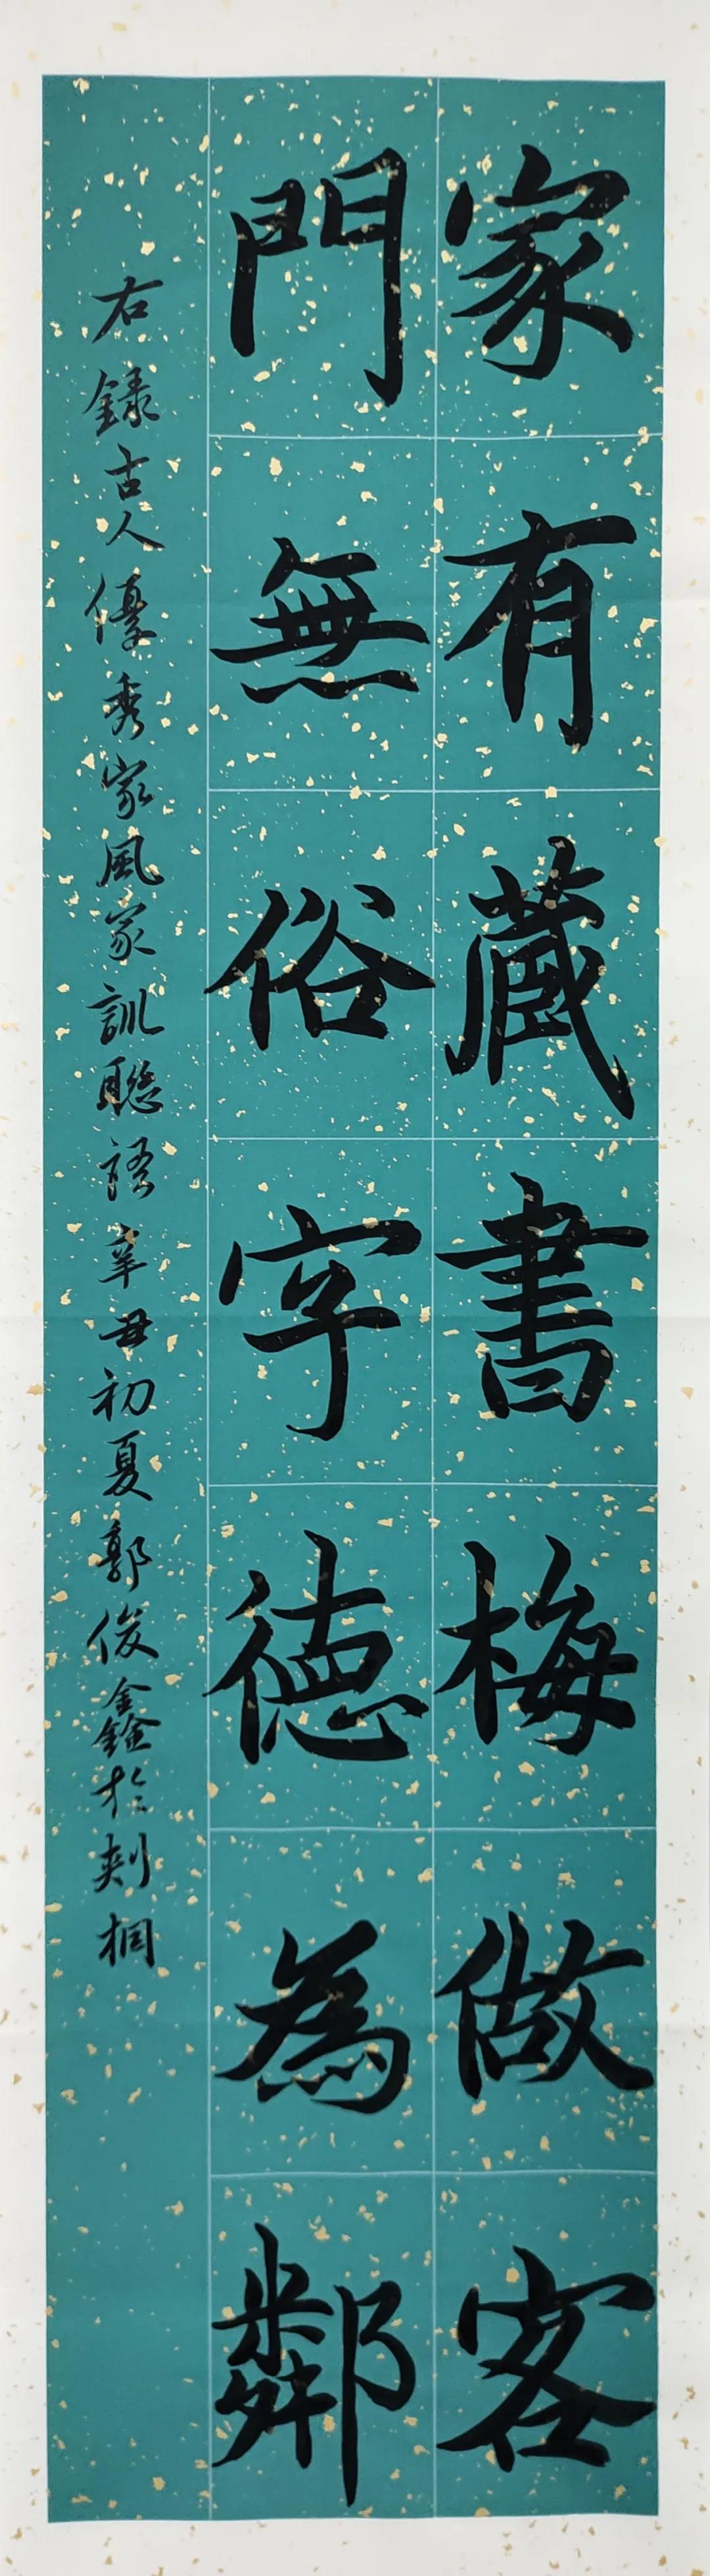 家有藏書梅做客
門無俗字德為鄰
右錄古人優秀家風家訓聯語辛丑初夏郭俊鑫於刺桐